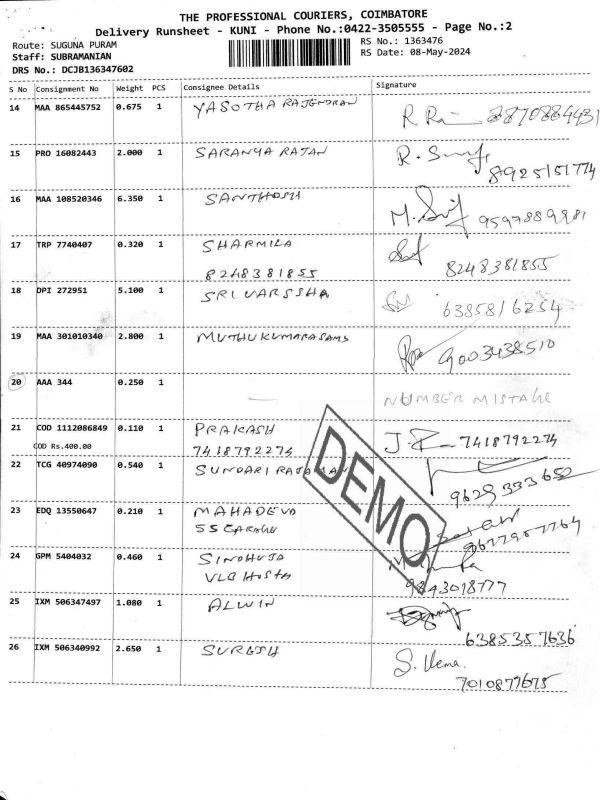 THE PROFESSIONAL COURIERS, COIMBATORE
Delivery Runsheet - KUNI - Phone No.:0422-3505555 - Page No.:2
Route: SUGUNA PURAM
RS No.: 1363476
Staff: SUBRAMANIAN
RS Date: 08-May-2024
DRS No.: DCJB136347602
S No Consignment No Weight PCS Consignee Details Signature
14 MAA 865445752 0.675 1 YASOTHA RAJENDRAN
R Ra 8870884431
15 PRO 16082443 2.000 1 SARANYA RAJAN
8925151774
16 MAA 108520346 6.350 1 SANTHOSH
9597889981
17 TRP 7740407 0.320 1 SHARMILA
8248381855 8248381855
18 DPI 272951 5.100 1 SRI VARSSHA
6385816254
19 MAA 301010340 2.800 1 MUTHUKUMARASAMY
9003438510
20 AAA 344 0.250 1 — NUMBER MISTAKE
21 COD 1112086849 0.110 1 PRAKASH
COD Rs.400.00 7418792274 7418792274
22 TCG 40974090 0.540 1 SUNDARI
9629333652
23 EDQ 13550647 0.210 1 MAHADEVA
24 GPM 5404032 0.460 1 SINDHUJA
VLB
9843018777
25 IXM 506347497 1.080 1 ALWIN
6385357636
26 IXM 506340992 2.650 1 SURESH
S. Hema
7010877675
DEMO